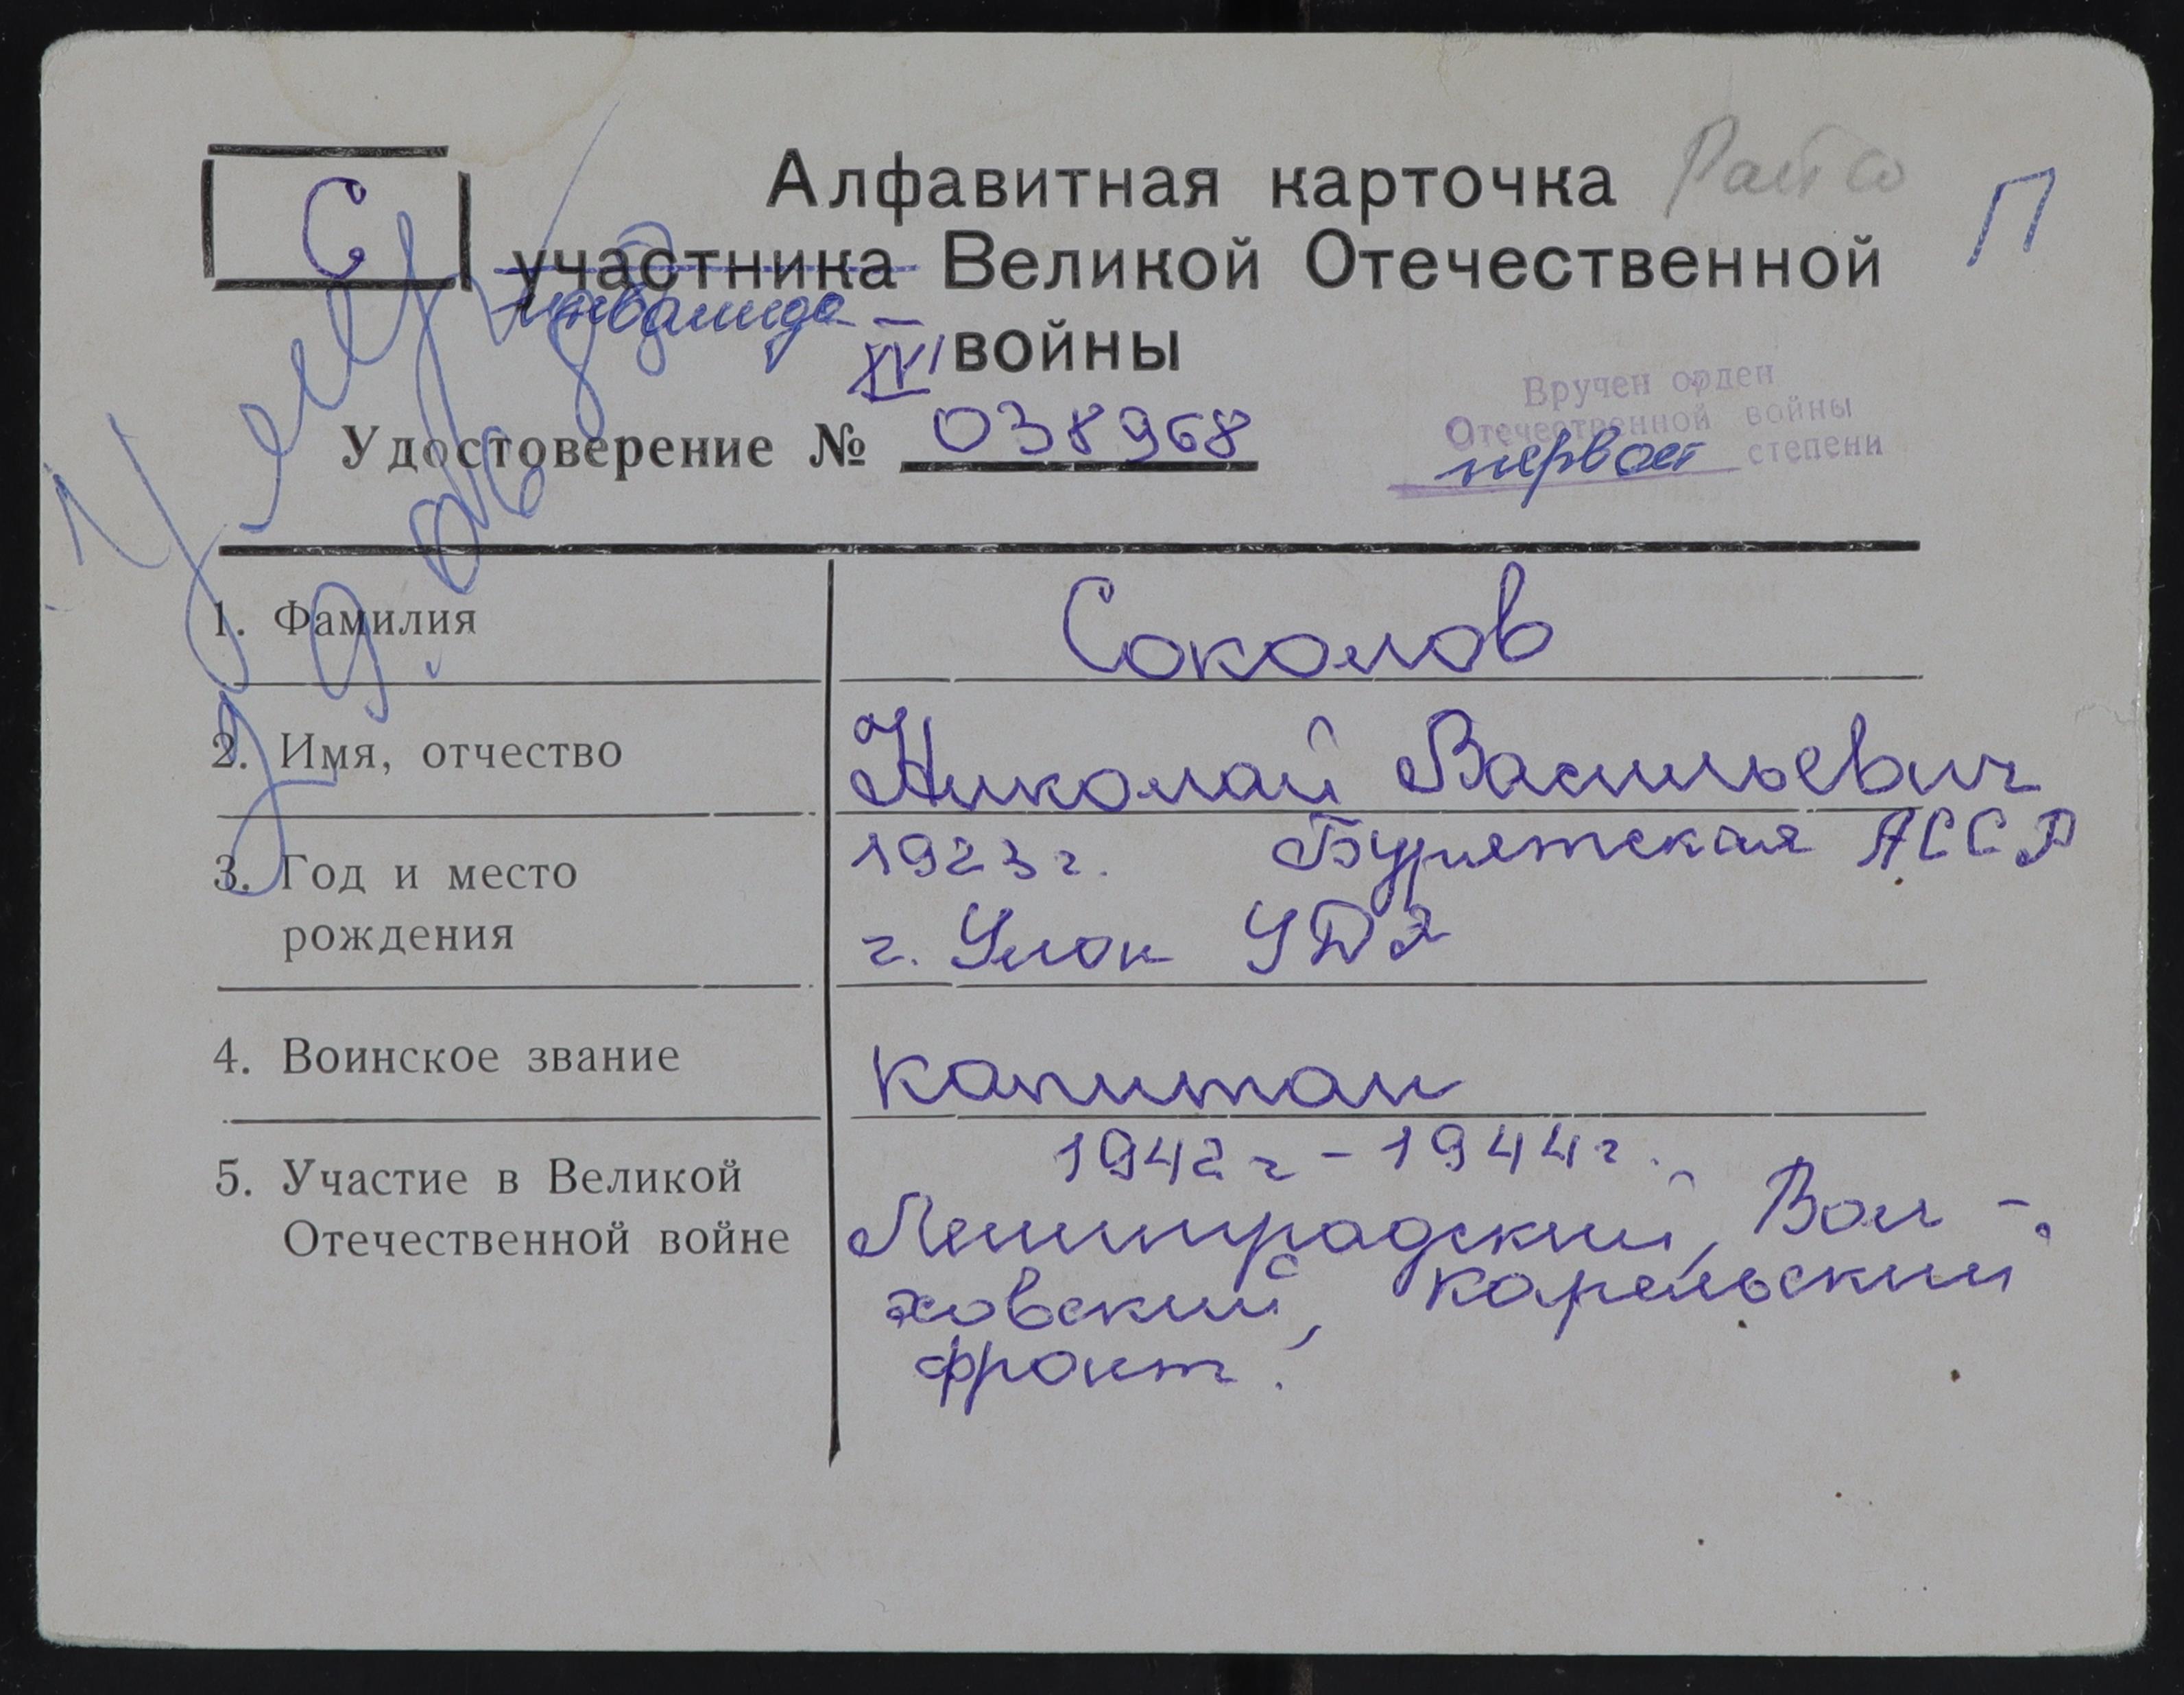 Алфавитная карточка Райсо
С участника Великой Отечественной П
инвалида войны
XVI
Удостоверение № 038968
Вручен орден
Отечественной войны
первой степени
Умер
1. Фамилия Соколов
2. Имя, отчество Николай Васильевич
3. Год и место 1923г. Бурятская АССР
рождения г. Улан УДЭ
4. Воинское звание капитан
1942г - 1944г.
5. Участие в Великой Ленинградский, Вол-
Отечественной войне ховский, Карельский
фронт.